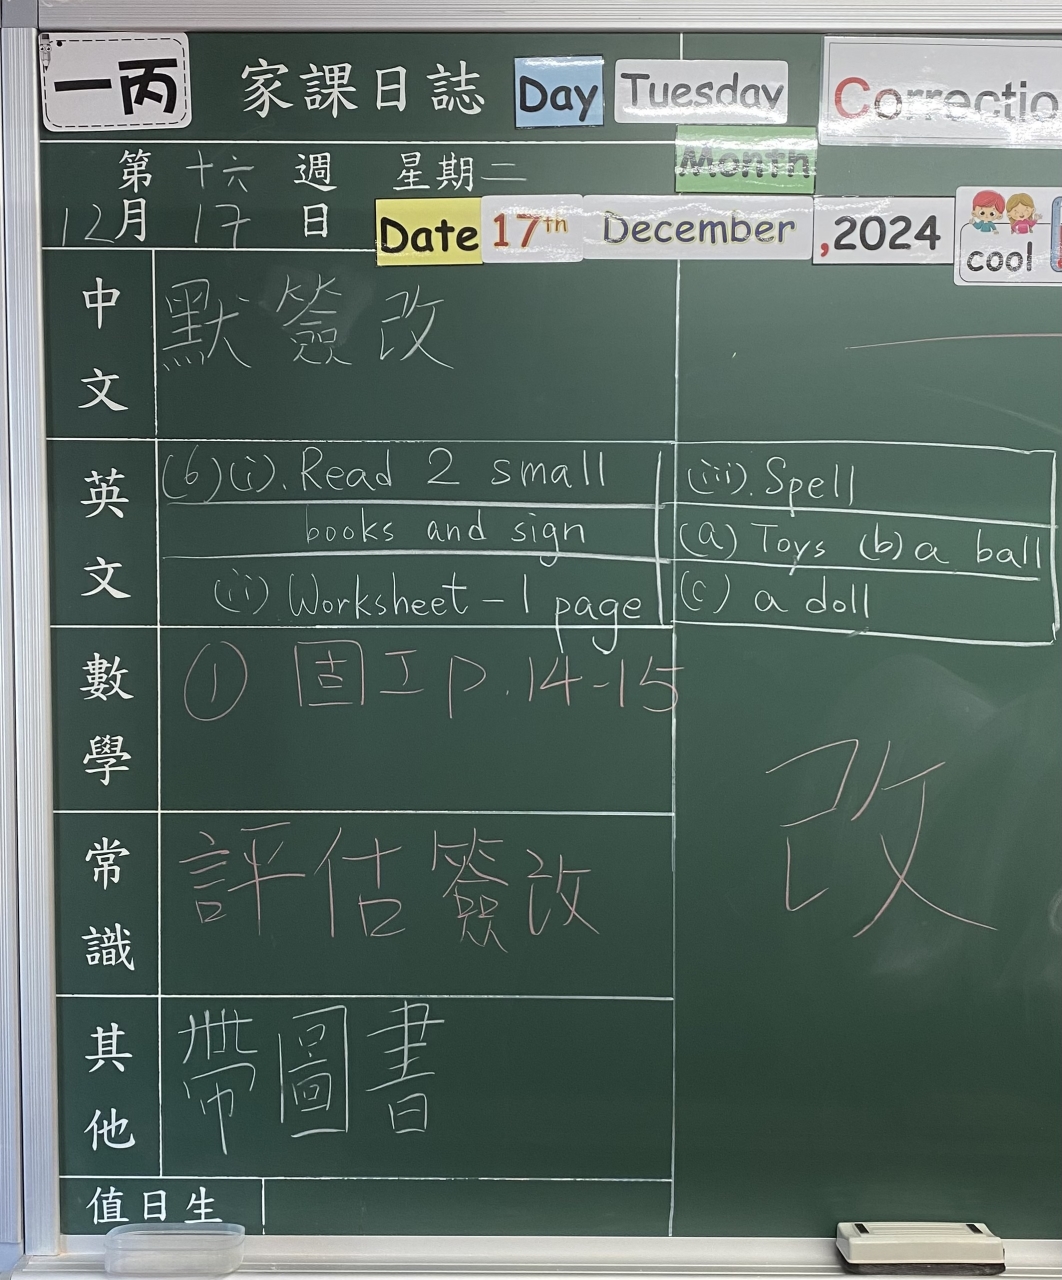 一丙 家課日誌 Day Tuesday Correctio
Month
第 十六 週 星期二
12月 17 日 Date 17th December ,2024
cool
中文 默簽改
英文 (6)(i). Read 2 small
books and sign
(ii) Worksheet - 1 page
(iii). Spell
(a) Toys (b) a ball
(c) a doll
數學 ① 固工 p.14-15
改
常識 評估簽改
其他 帶圖書
值日生